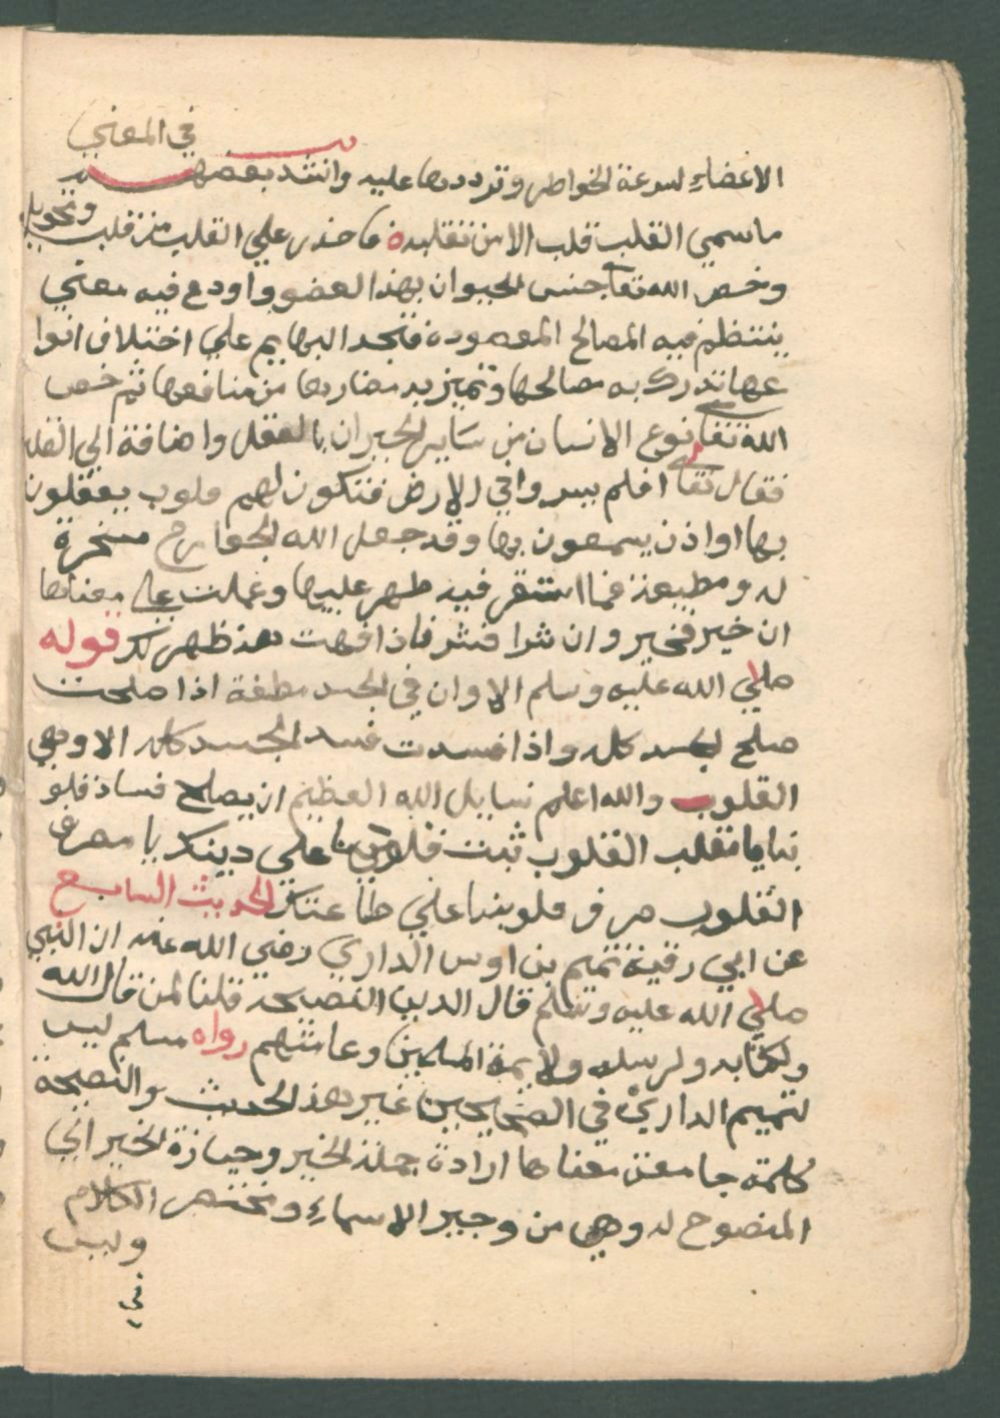 في المعني
الاعضاءِ لسرعة الخواطر وترددها عليه وانشد بعضهم
ما سمي القلب قلب الا من تقلبه فاحذر علي القلب من قلب وتحويل
وخص الله تعا جنس الحيوان بهذا العضو واودع فيه معني
ينتظم فيه المصالح المقصودة فتجد البهايم علي اختلاف انوا
عها تدرك به مصالحها وتميز به مضارها من منافعها ثم خص
الله تعا نوع الانسان من ساير الحيوان بالعقل واضافة الي القلب
فقال تعا افلم يسيروا في الارض فتكون لهم قلوب يعقلون
بها او اذن يسمعون بها وقد جعل الله الجوارح مسخرة
له ومطيعة فما استقر فيه ظهر عليها وعملت علي معناها
ان خير فخير وان شرا فشر فاذ افهمت هذ ظهر لك قوله
صلي الله عليه وسلم الا وان في الجسد مظغة اذا صلحت
صلح الجسد كله واذا فسدت فسد الجسد كله الا وهي
القلوب والله اعلم نسايل الله العظيم ان يصلح فساد قلو
بنا يا مقلب القلوب ثبت قلوبنا علي دينك يا مصرف
القلوب صرف قلوبنا علي طاعتك الحديث السابع
عن ابي رقية تميم بن اوس الداري رضي الله عنه ان النبي
صلي الله عليه وسلم قال الدين النصيحه قلنا لمن قال لله
ولكتابه ولرسله ولايمة المسلمين وعامتهم رواه مسلم ليس
لتميم الداري في الصحيحين غير هذ الحديث والنصيحة
كلمة جامعة معناها ارادة جملة الخير وحيازة الخير الي
المنصوح له وهي من وجيز الاسماءِ ومختصر الكلام
وليس
في